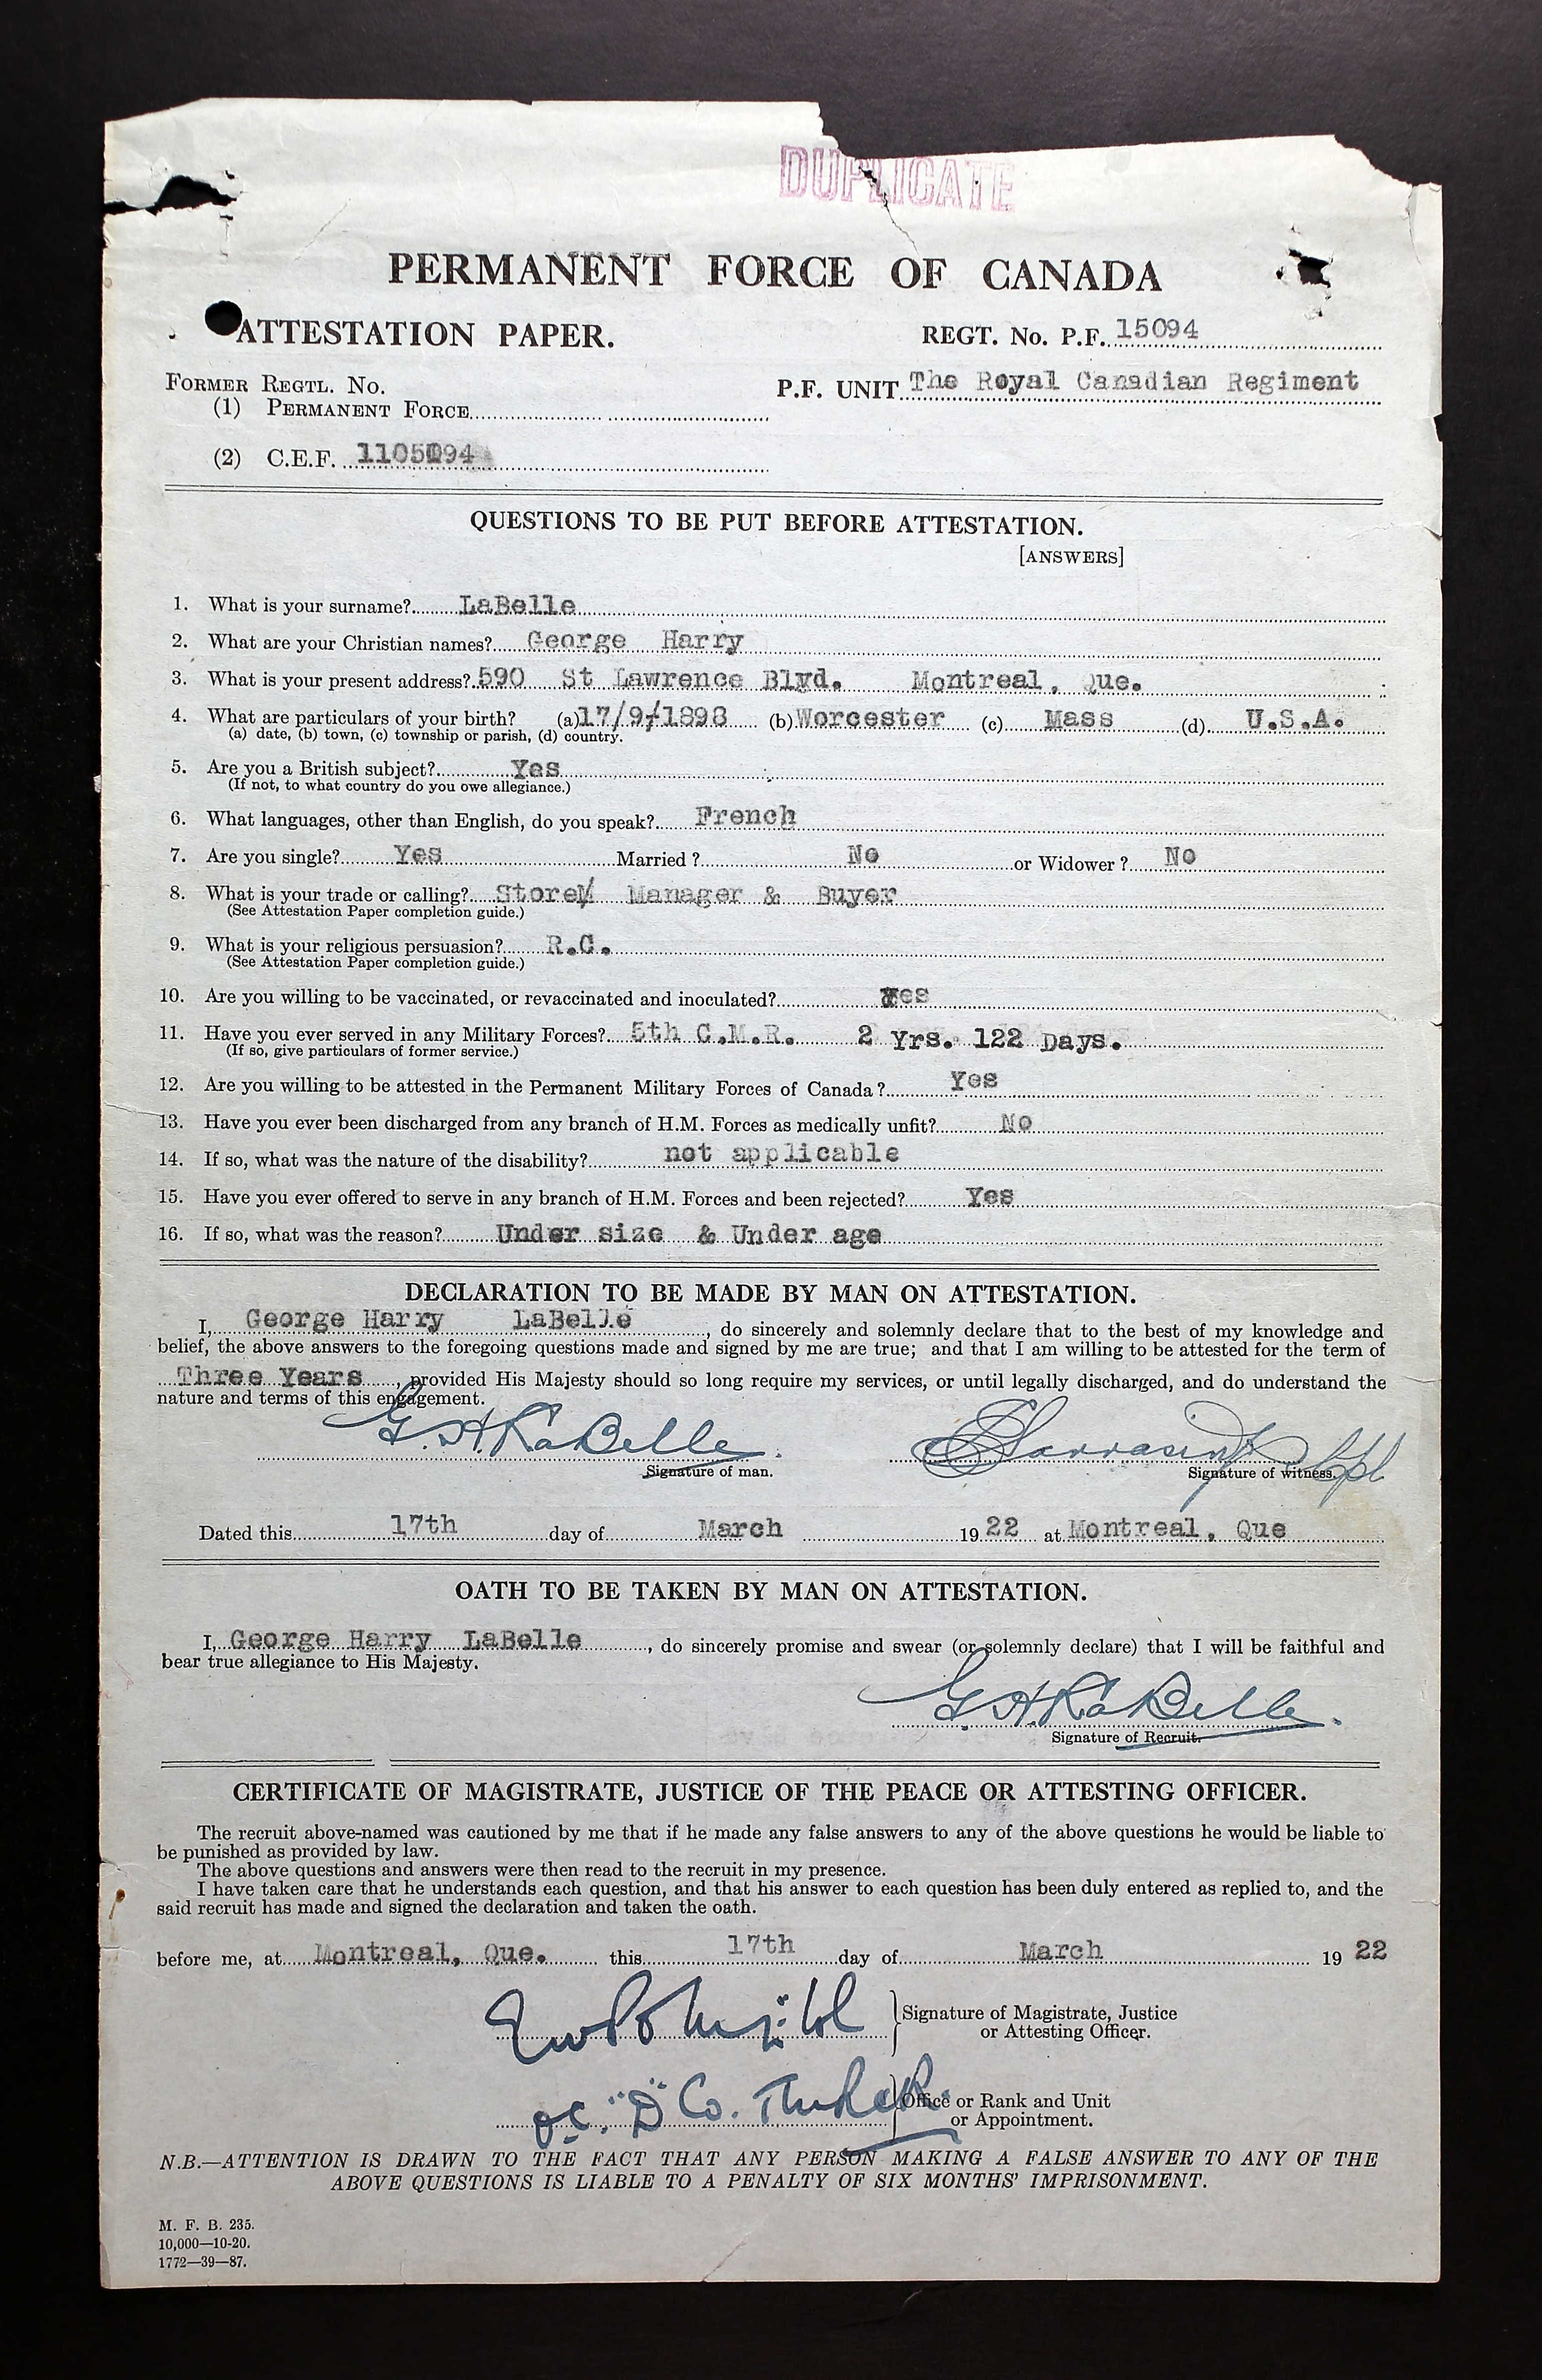 DUPLICATE
PERMANENT FORCE OF CANADA
ATTESTATION PAPER.
REGT. No. P.F. 15094
FORMER REGTL. No.
P.F. UNIT The Royal Canadian Regiment
(1) PERMANENT FORCE
(2) C.E.F.
QUESTIONS TO BE PUT BEFORE ATTESTATION.
[ANSWERS]
1. What is your surname? LaBelle
2. What are your Christian names? George Harry
3. What is your present address? 590 St Lawrence Blvd. Montreal, Que.
4. What are particulars of your birth? (a) 17/9/1898 (b) Worcester (c) Mass (d) U.S.A.
(a) date, (b) town, (c) township or parish, (d) country.
5. Are you a British subject? Yes
(If not, to what country do you owe allegiance.)
6. What languages, other than English, do you speak? French
7. Are you single? Yes Married ? No or Widower ? No
8. What is your trade or calling? Store Manager & Buyer
(See Attestation Paper completion guide.)
9. What is your religious persuasion? R.C.
(See Attestation Paper completion guide.)
10. Are you willing to be vaccinated, or revaccinated and inoculated? Yes
11. Have you ever served in any Military Forces? 5th C.M.R. 2 Yrs. 122 Days.
(If so, give particulars of former service.)
12. Are you willing to be attested in the Permanent Military Forces of Canada ? Yes
13. Have you ever been discharged from any branch of H.M. Forces as medically unfit? No
14. If so, what was the nature of the disability? not applicable
15. Have you ever offered to serve in any branch of H.M. Forces and been rejected? Yes
16. If so, what was the reason? Under size & Under age
DECLARATION TO BE MADE BY MAN ON ATTESTATION.
I, George Harry LaBelle, do sincerely and solemnly declare that to the best of my knowledge and
belief, the above answers to the foregoing questions made and signed by me are true; and that I am willing to be attested for the term of
Three Years, provided His Majesty should so long require my services, or until legally discharged, and do understand the
nature and terms of this engagement.
G. H. LaBelle Cpl
Signature of man. Signature of witness.
Dated this 17th day of March 1922 at Montreal, Que
OATH TO BE TAKEN BY MAN ON ATTESTATION.
I, George Harry LaBelle, do sincerely promise and swear (or solemnly declare) that I will be faithful and
bear true allegiance to His Majesty.
G. H. LaBelle.
Signature of Recruit.
CERTIFICATE OF MAGISTRATE, JUSTICE OF THE PEACE OR ATTESTING OFFICER.
The recruit above-named was cautioned by me that if he made any false answers to any of the above questions he would be liable to
be punished as provided by law.
The above questions and answers were then read to the recruit in my presence.
I have taken care that he understands each question, and that his answer to each question has been duly entered as replied to, and the
said recruit has made and signed the declaration and taken the oath.
before me, at Montreal, Que. this 17th day of March 1922
Signature of Magistrate, Justice
or Attesting Officer.
O.C. "D" Co. The R.C.R. Office or Rank and Unit
or Appointment.
N.B.—ATTENTION IS DRAWN TO THE FACT THAT ANY PERSON MAKING A FALSE ANSWER TO ANY OF THE
ABOVE QUESTIONS IS LIABLE TO A PENALTY OF SIX MONTHS' IMPRISONMENT.
M. F. B. 235.
10,000—10-20.
1772—39—87.